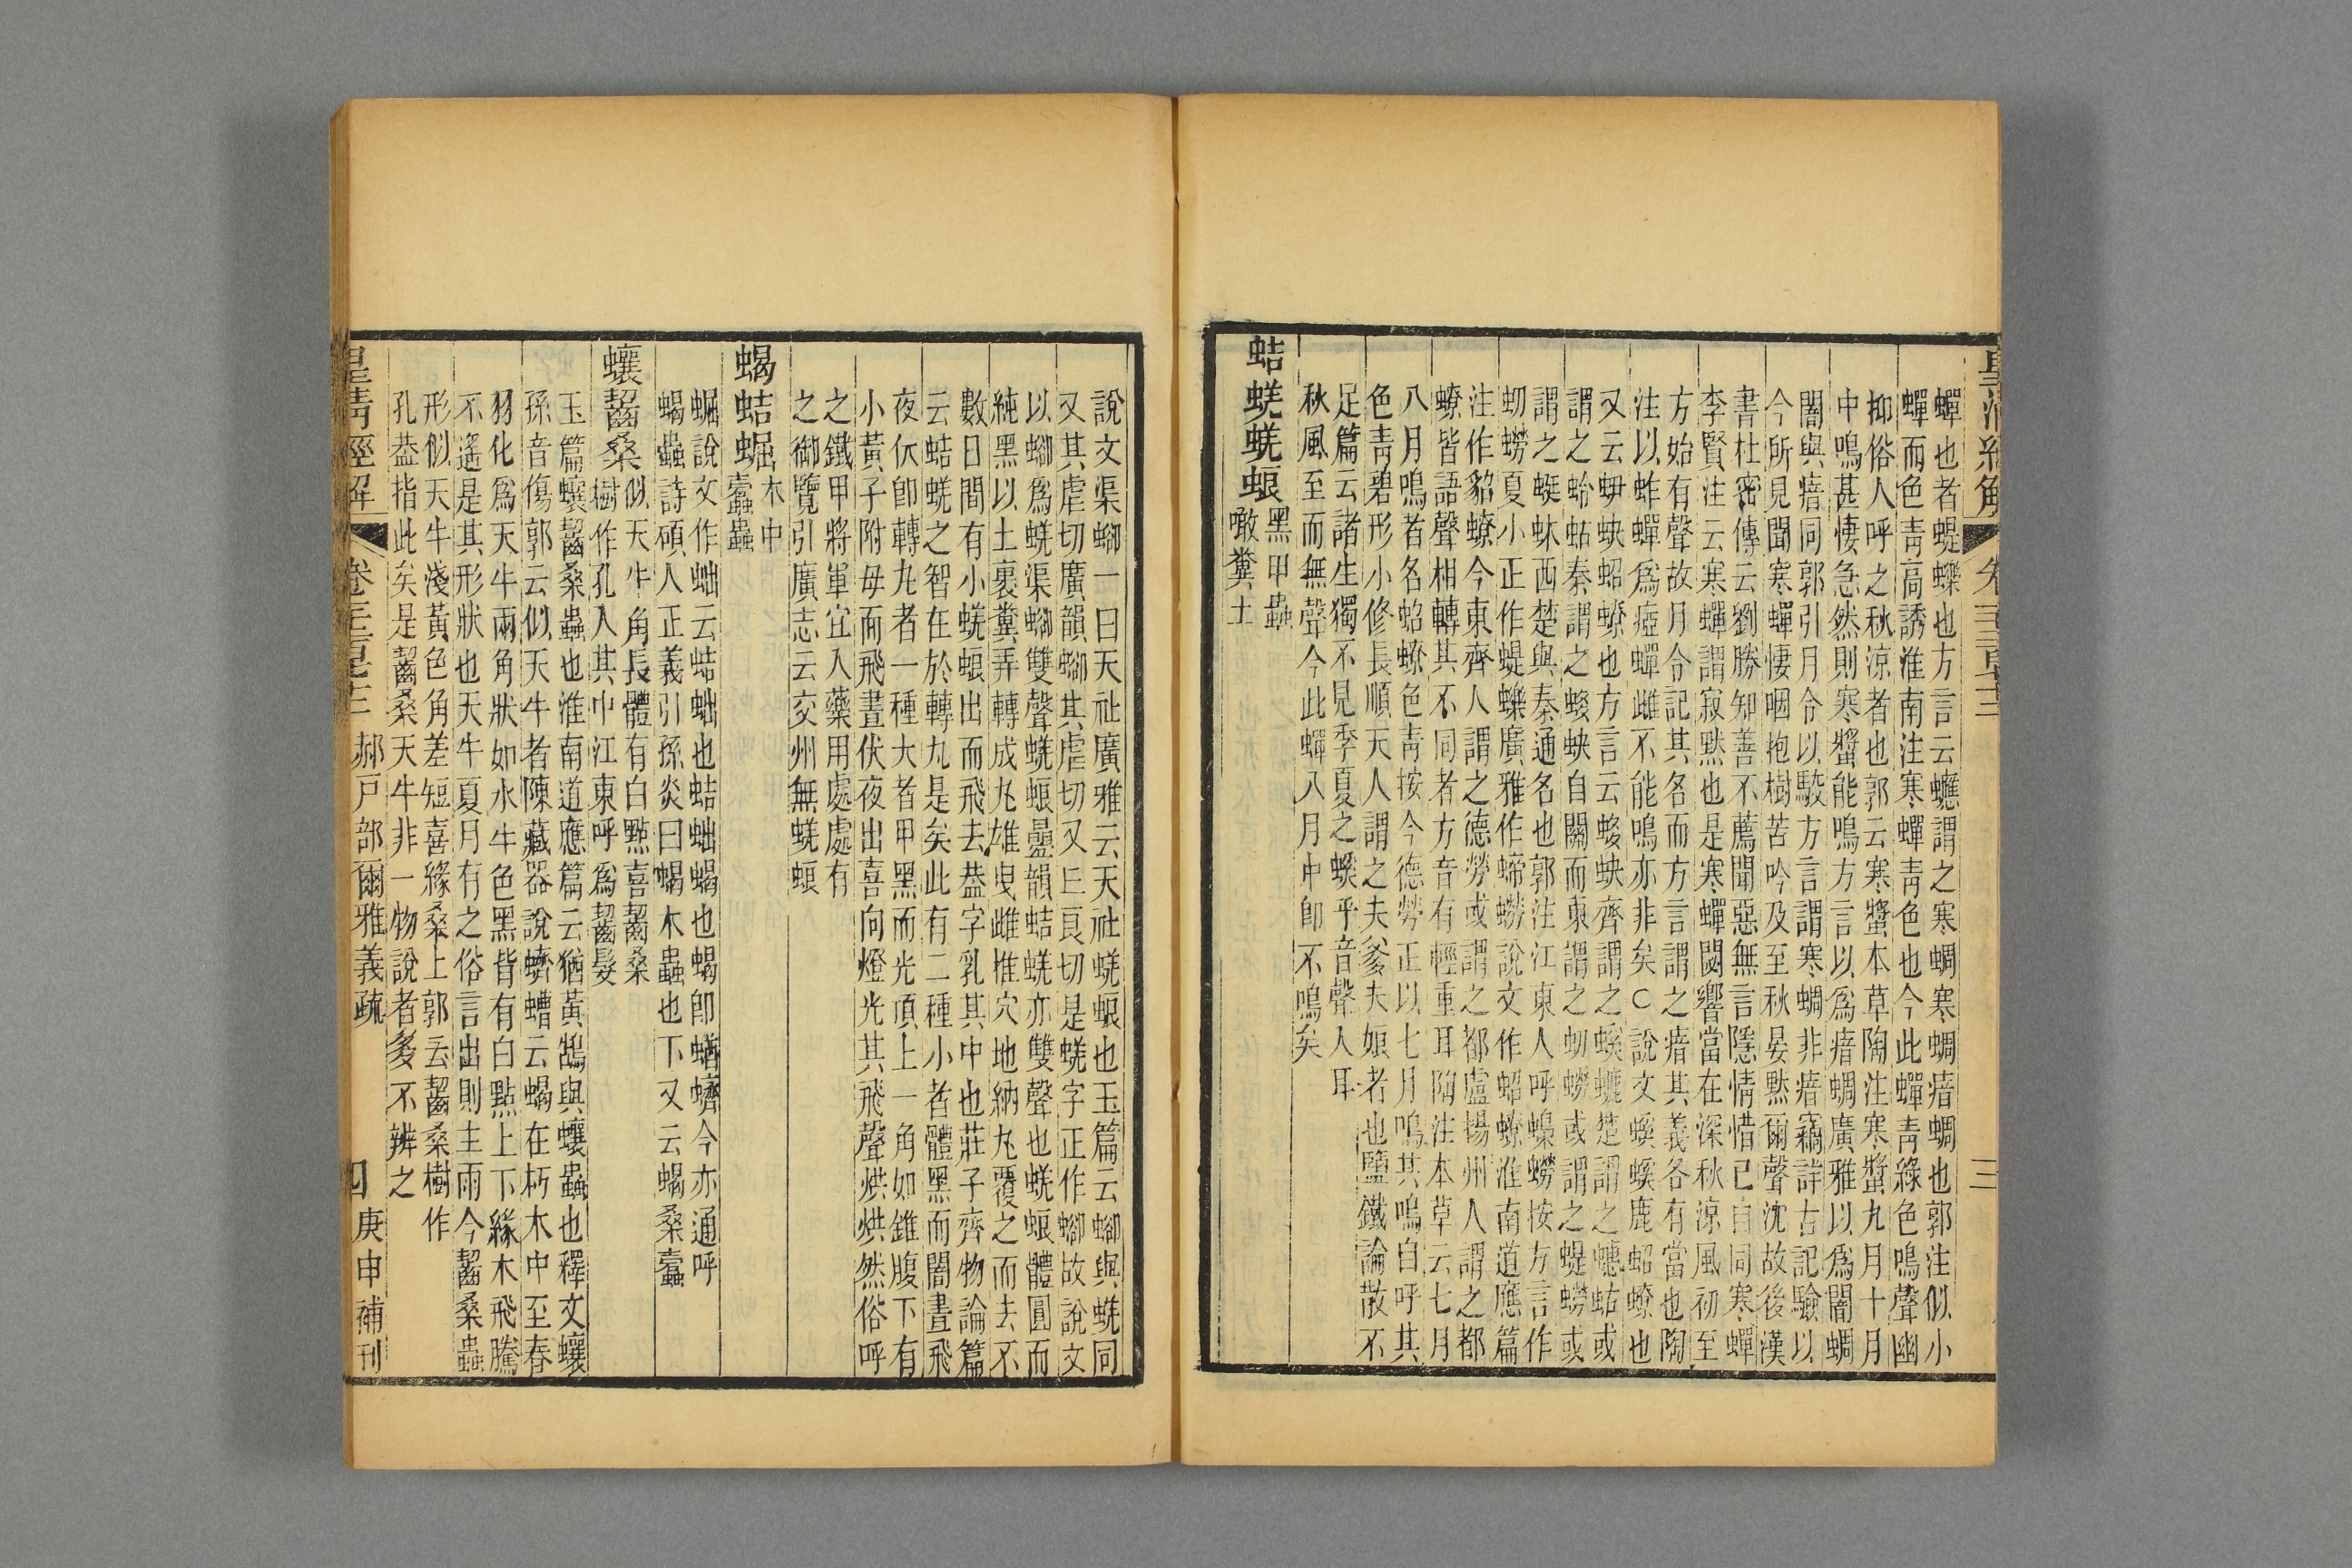 蟬也者蜓蠑也方言云蟪謂之寒蜩寒蜩瘖蜩也郭注似小
蟬而色青高誘淮南注寒蟬青色也今此蟬青綠色鳴聲幽
抑俗人呼之秋涼者也郭云寒螿本草陶注寒螿九月十月
中鳴甚悽急然則寒螿能鳴方言以爲瘖蜩廣雅以爲闇蜩
闇與瘖同郭引月令以駮方言謂寒蜩非瘖竊詳古記驗以
今所見聞寒蟬悽咽抱樹苦吟及至秋晏黙爾聲沈故後漢
書杜密傳云劉勝知善不薦聞惡無言隱情惜已自同寒蟬
李賢注云寒蟬謂寂黙也是寒蟬闃響當在深秋涼風初至
方始有聲故月令記其名而方言謂之瘖其義各有當也陶
注以蚱蟬爲瘂蟬雌不能鳴亦非矣○說文螇螇鹿蛁蟟也
又云蚈蚗蛁蟟也方言云蛥蚗齊謂之螇螰楚謂之蟪蛄或
謂之蛉蛄秦謂之蛥蚗自關而東謂之虭蟧或謂之蝭蟧或
謂之蜓蚞西楚與秦通名也郭注江東人呼蟂蟧按方言作
虭蟧夏小正作蝭蠑廣雅作蝭蟧說文作蛁蟟淮南道應篇
注作貂蟟今東齊人謂之德勞或謂之都盧揚州人謂之都
蟟皆語聲相轉其不同者方音有輕重耳陶注本草云七月
八月鳴者名蛁蟟色青按今德勞正以七月鳴其鳴自呼其
色青碧形小修長順天人謂之夫爹夫娘者也鹽鐵論散不
足篇云諸生獨不見季夏之螇乎音聲人耳
秋風至而無聲今此蟬八月中卽不鳴矣
蛣蜣蜣蜋黑甲蟲
噉糞土
說文渠蝍一曰天社廣雅云天社蜣蜋也玉篇云蝍與蜣同
又其虐切廣韻蝍其虐切又巨良切是蜣字正作蝍故說文
以蝍爲蜣渠蝍雙聲蜣蜋疊韻蛣蜣亦雙聲也蜣蜋體圓而
純黑以土裹糞弄轉成丸雄曳雌推穴地納丸覆之而去不
數日間有小蜣蜋出而飛去葢字乳其中也莊子齊物論篇
云蛣蜣之智在於轉丸是矣此有二種小者體黑而闇晝飛
夜伏卽轉丸者一種大者甲黑而光頂上一角如錐腹下有
小黃子附母而飛晝伏夜出喜向燈光其飛聲烘烘然俗呼
之鐵甲將軍宜入藥用處處有
之御覽引廣志云交州無蜣蜋
蝎蛣𧌑木中
蠹蟲
𧌑說文作蚰云蛣蚰也蛣蚰蝎也蝎卽蝤蠐今亦通呼
蝎蟲詩碩人正義引孫炎曰蝎木蟲也下又云蝎桑蠹
蠰齧桑似天牛角長體有白點喜齧桑
樹作孔入其中江東呼爲齧髮
玉篇蠰齧桑蟲也淮南道應篇云猶黃鵠與蠰蟲也釋文蠰
孫音傷郭云似天牛者陳藏器說蠐螬云蝎在朽木中至春
羽化爲天牛兩角狀如水牛色黑皆有白點上下緣木飛騰
不遙是其形狀也天牛夏月有之俗言出則主雨今齧桑蟲
形似天牛淺黃色角差短喜緣桑上郭云齧桑樹作
孔葢指此矣是齧桑天牛非一物說者多不辨之
皇清經解 卷千二百七十三 郝戶部爾雅義疏 四 庚申補刊